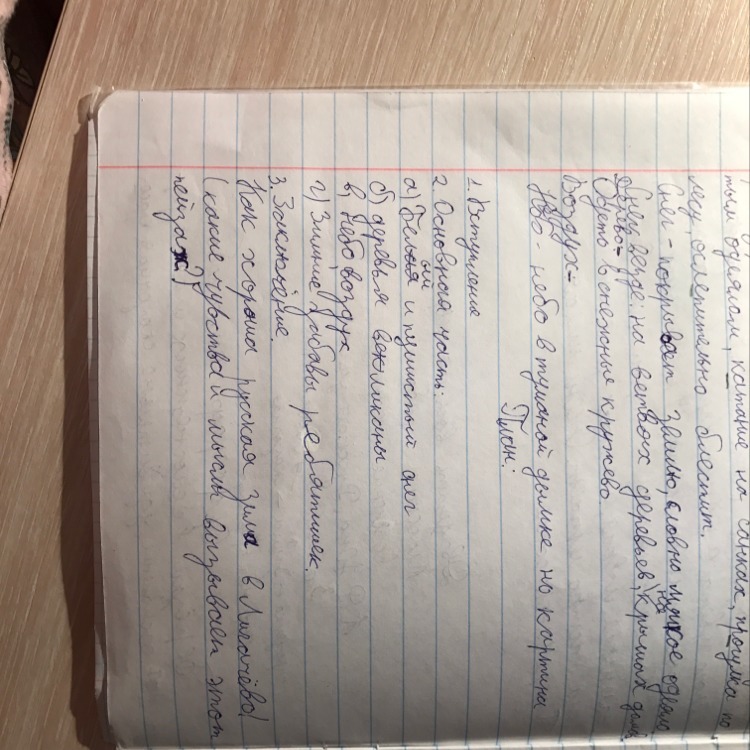 тым одеялом, катание на санках, прогулка по
лесу, ослепительно блестит.
Снег - покрывает землю, словно мягкое одеяло
Снег везде: на ветвях деревьев, на крышах дома
Дерево-
Одето в снежные кружево
Воздух-
Небо - небо в туманой дымке на картине
План:
1. Вступление
2. Основная часть:
а) Белый и пушистый снег
б) деревья великаны
в) небо, воздух
г) Зимние забавы ребятишек.
3. Заключение.
Как хороша русская зима в Лигачёво!
(какие чувства и мысли вызываем этот
пейзаж?)